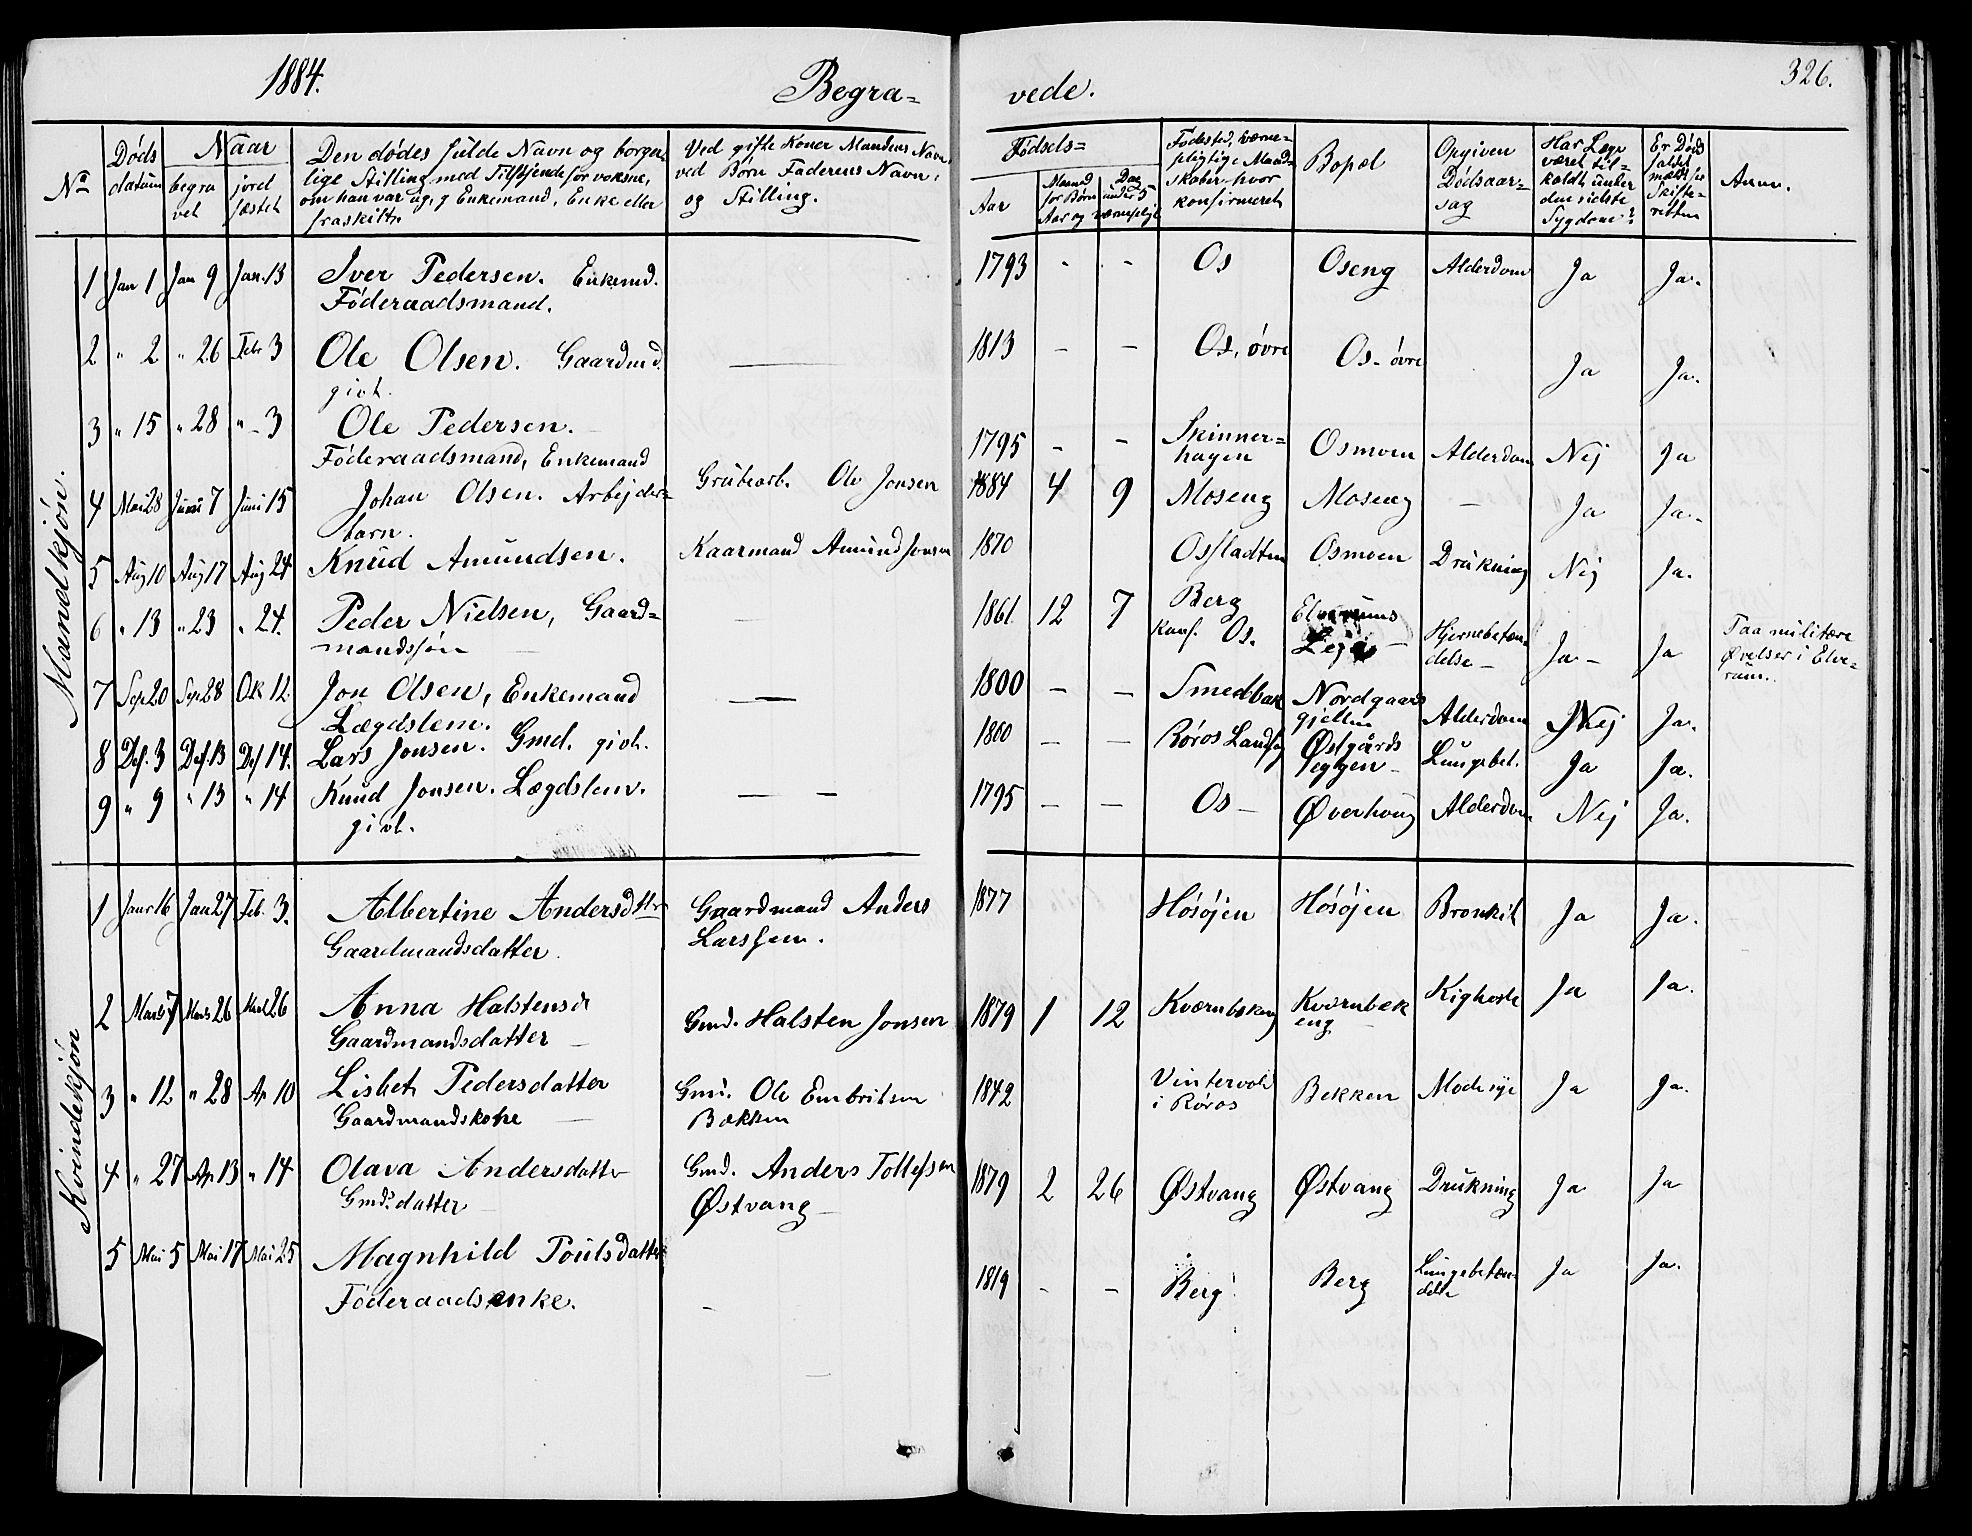 1884.
Begra=
vede.
326.
No
Døds
datum
Naar
begra
vet
jord
fæstet
Den dødes fulde Navn og borger=
lige Stilling med Tilføjende for voksne,
om han var ug., g Enkemand, Enke eller
fraskilt.
Ved gifte Koner Mandens Navn
ved Børn Faderens Navn,
og Stilling.
Fødsels=
Aar
Maaned
for Børn
Aar og
Dag
under 5
værnepligt
Fødested, værne=
pligtige Mand=
skaber hvor
konfirmeret
Bopæl
Opgiven
Dødsaar=
sag
Har Læge
været til=
kaldt under
den sidste
Sygdom?
Er Døds
faldet
mældt for
Skifte=
retten
Anm.
Mandkjøn.
1 Jan 1 Jan 9 Jan. 13 Iver Pedersen. Enkemd. 1793 - - Os Oseng Alderdom Ja Ja.
Føderaadsmand.
2 " 2 " 26 Febr 3 Ole Olsen. Gaardmd. — 1813 - - Os, øvre Os. øvre Ja Ja.
givt.
3 " 15 " 28 " - 3 Ole Pedersen. 1795 - - Skinner=
hagen Osmoen Alderdom Nej Ja
Føderaadsmand, Enkemand
4 Mai 28 Juni 7 Juni 15 Johan Olsen. Arbejder= Grubearb. Ole Jonsen 1884 4 9 Moseng Moseng - Ja Ja.
barn.
5 Aug 10 Aug 17 Aug 24 Knud Amundsen. Kaarmand Amund Jonsen 1870 Osmoen Drukning Nej Ja.
6 " 13 " 23 " 24. Peder Nielsen, Gaard= 1861 12 7 Berg Elverums Hjernebetæn= Ja - Ja Paa militære
mandssøn Konf. Os. Lejr delse - Øvelser i Elve=
rum.
7 Sep 20 Sep 28 Okt 12. Jon Olsen, Enkemand — 1800 - - Smedbak Nordgaards Alderdom Nej Ja.
Lægdslem. gjelten
8 Des. 3 Des. 13 Des 14. Lars Jonsen. Gmd. givt. 1860 - - Røros Landsog Østgårds Lungebet. Ja Ja.
eggen
9 " 9 " 13 " 14 Knud Jonsen. Lægdslem. — — 1795 - - Os - Øverhoug Alderdom Nej Ja.
givt.
Kvindekjøn
1 Janr 16 Jan 27 Feb. 3. Albertine Andersdtr Gaardmand Anders 1877 Høsøjen Høsøjen Bronkit Ja Ja.
Gaardmandsdatter. Larssen.
2 Marts 7 Marts 26 Marts 26 Anna Halstensd Gmd. Halsten Jonsen 1879 1 12 Kværnbækeng Kværnbæk Kighoste Ja Ja.
Gaardmandsdatter - eng -
3 " 12 " 28 Ap 10 Lisbet Pedersdatter Gmd. Ole Embritsen 1842 Vintervold Bekken Modesyge Ja Ja.
Gaardmandskone - Bækken i Røros
4 " 27 Ap 13 " 14 Olava Andersdatter Gmd. Anders Tollefsen 1879 2 26 Østvang Østvang Drukning Ja Ja
Gmds. datter - Østvang -
5 Mai 5 Mai 17 Mai 25 Magnhild Poulsdatter 1819 - - Berg Berg Lungebetæn= Ja Ja.
Føderaadsenke. - delse